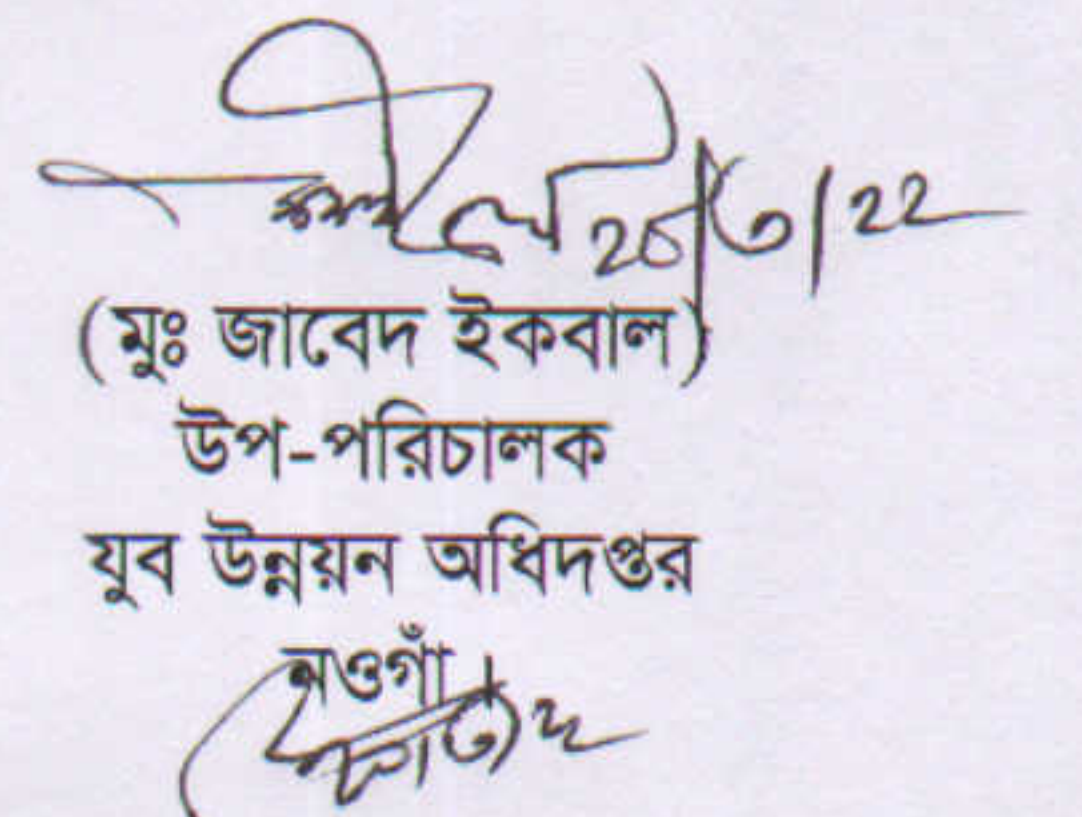 ২৮/৩/২২
(মুঃ জাবেদ ইকবাল)
উপ-পরিচালক
যুব উন্নয়ন অধিদপ্তর
নওগাঁ